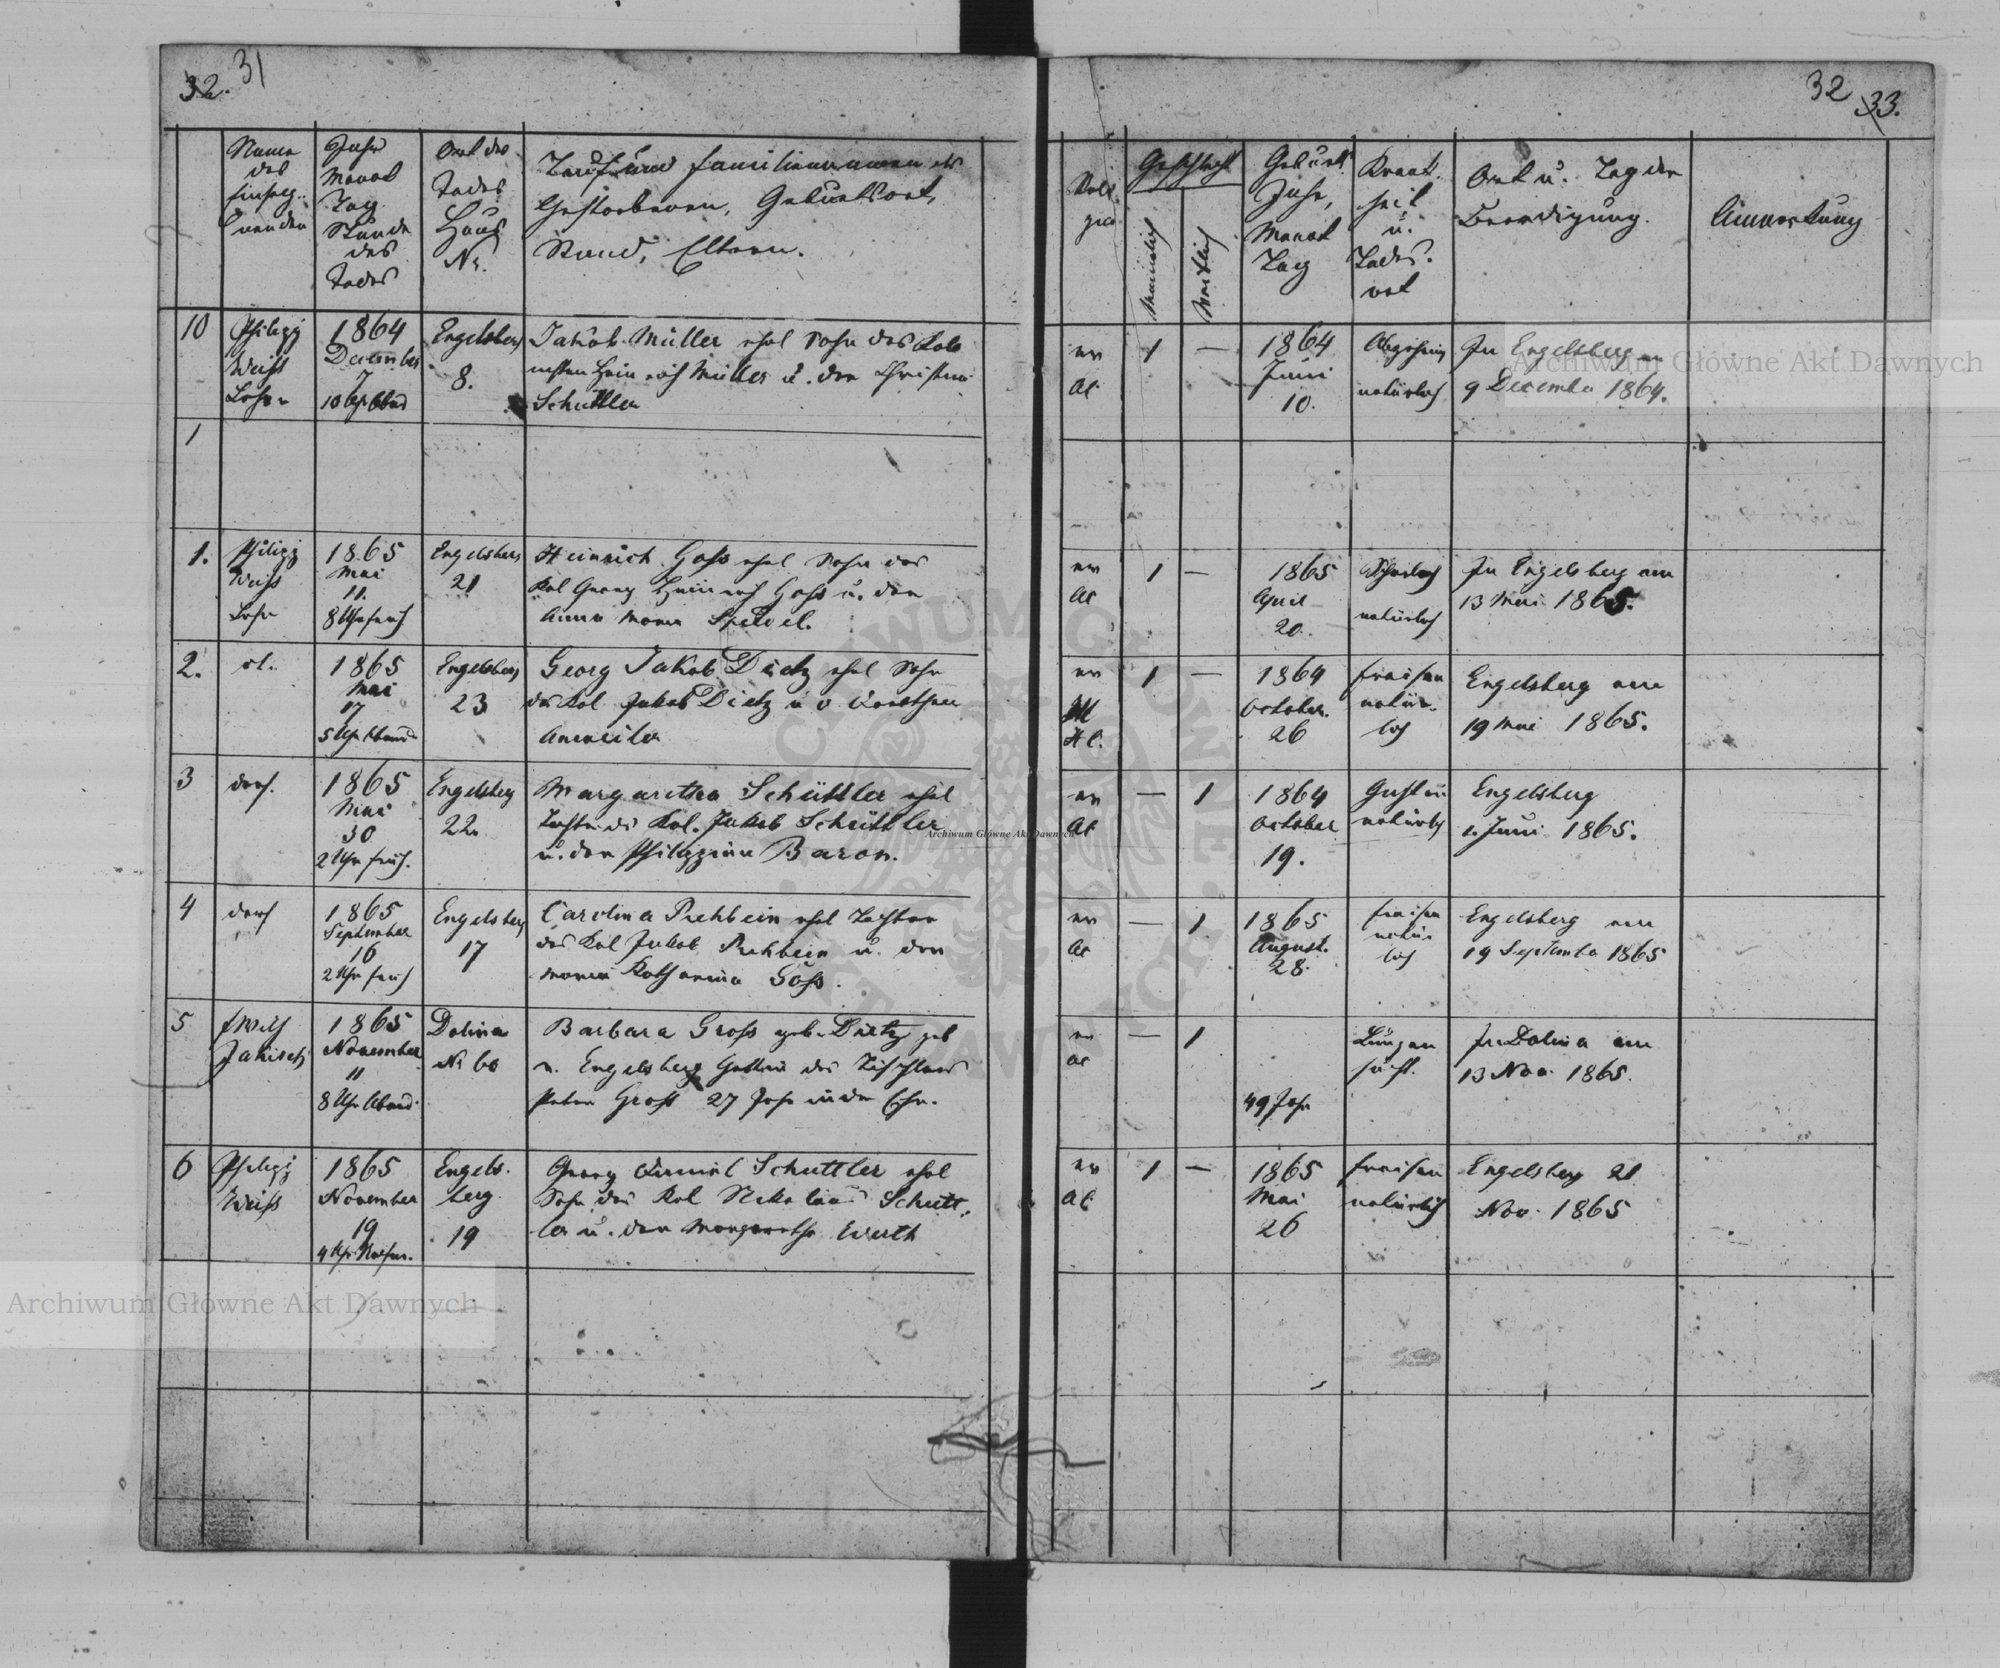 32. 31
Name
des
Einseg-
nenden
Jahr
Monat
Tag
Stunde
des
Todes
Ort des
Todes
Haus
Nr.
Tauf und Familiennamen des
Gestorbenen, Geburtsort,
Stand, Eltern.
10
Philipp
Weiss
Lehrer
1864
December
7
10 Uhr Abend
Engelsberg
8.
Jakob Müller ehel Sohn des Kolo
nisten Heinrich Müller u. der Christina
Schüttler
1
1.
Philipp
Weiss
Lehrer
1865
Mai
11.
8 Uhr früh
Engelsberg
21
Heinrich Hoss ehel Sohn des
Kol Georg Heinrich Hoss u. der
Anna Maria Speidel.
2.
1865
Mai
17
5 Uhr Abend
Engelsberg
23
Georg Jakob Dietz ehel Sohn
des Kol Jakob Dietz u d Dorothea
3
ders.
1865
Mai
30
2 Uhr früh.
Engelsberg
22.
Margaretha Schüttler ehel
Tochter des Kol. Jakob Schüttler
u. der Philippina Baron.
4
ders
1865
September
16
2 Uhr früh
Engelsberg
17
Carolina Rehbein ehel Tochter
des Kol Jakob Rehbein u. der
Maria Katharina Göss.
5
Jakisch
1865
November
11
8 Uhr Abend.
Dolina
Nr 60
Barbara Gross geb. Dietz geb
v. Engelsberg Gattin des Tischlers
Peter Gross 27 Jahr in der Ehe.
6
Philipp
Weiss
1865
November
19
4 Uhr Nachm.
Engels.
berg
19
Georg Daniel Schüttler ehel
Sohn des Kol Nikolaus Schütt.
ler u. der Margaretha Wirth
32 33.
Reli
gion
Geschlecht
Männlich
Weiblich
Geburts
Jahr,
Monat
Tag
Krank.
heit
u.
Todes.
art
Ort u. Tag der
Beerdigung.
Anmerkung
ev
AC
1
—
1864
Juni
10.
Abzehrung
natürlich
In Engelsberg am
9 December 1864.
ev
AC
1
—
1865
April
20.
natürlich
In Engelsberg am
13 Mai 1865.
ev
HC.
1
—
1864
October.
26
Fraisen
natür-
lich
Engelsberg am
19 Mai 1865.
ev
AC
—
1
1864
October
19.
natürlich
Engelsberg
1. Juni 1865.
ev
AC
—
1
1865
August.
28.
Fraisen
natür
lich
Engelsberg am
19 September 1865
ev
AC
—
1
49 Jahr
Lungen
sucht.
In Dolina am
13 Nov. 1865.
ev
AC
1
—
1865
Mai
26
Fraisen
natürlich
Engelsberg 21
Nov. 1865
Archiwum Główne Akt Dawnych
Archiwum Główne Akt Dawnych
Archiwum Główne Akt Dawnych
ARCHIWUM GŁÓWNE AKT DAWNYCH